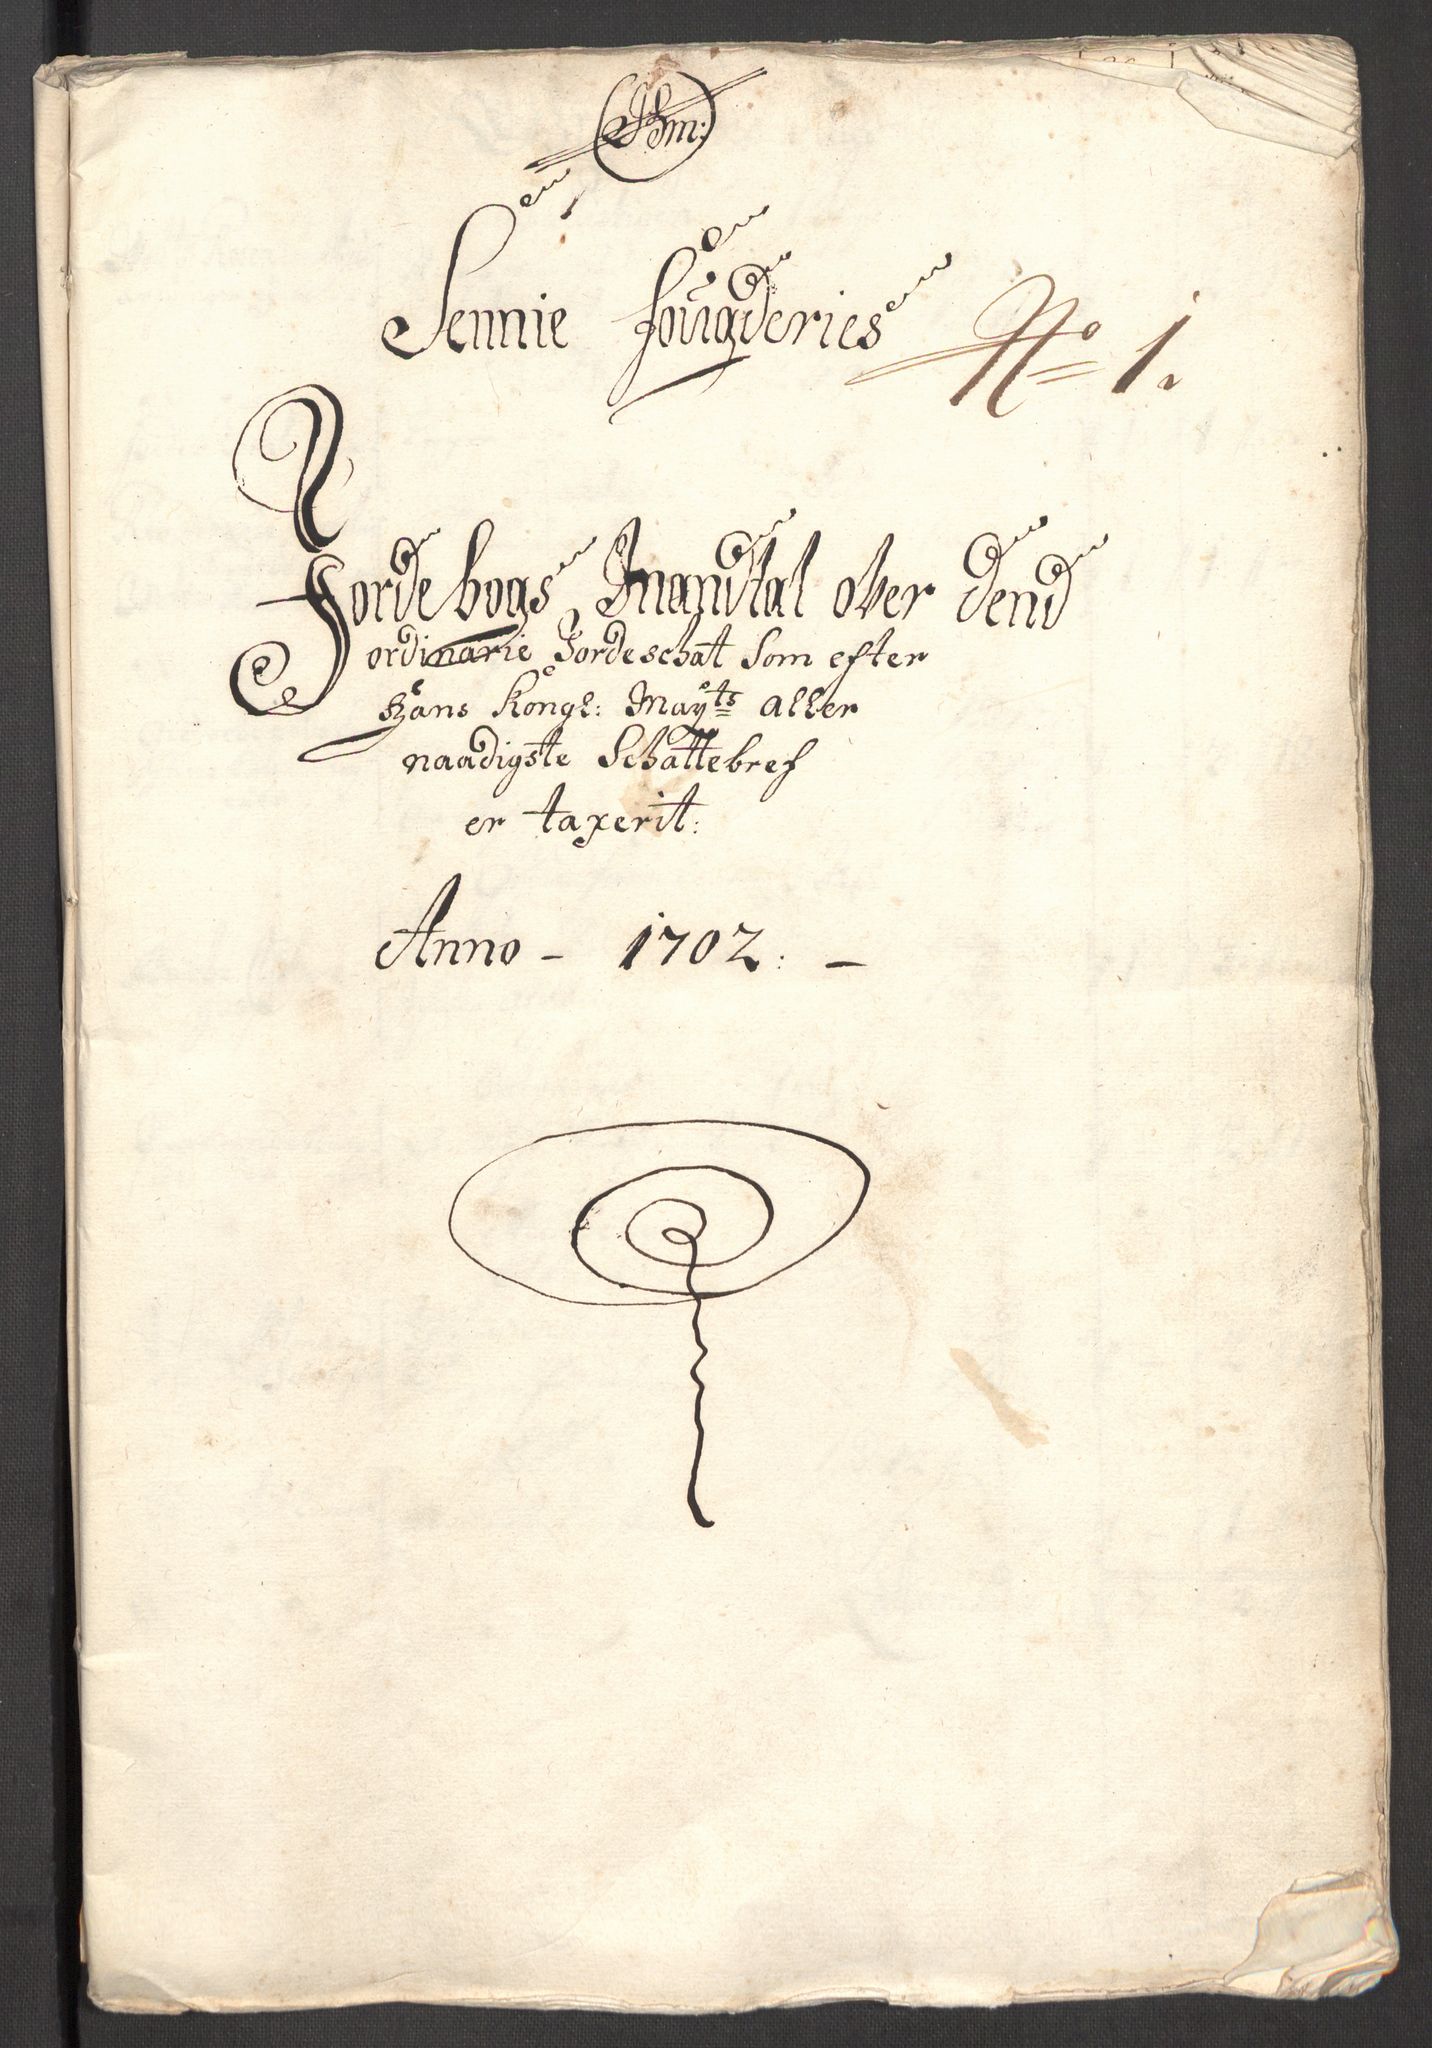 Sennie fougderies No 1.
Jordebogs Mandtal over dend
ordinarie Jordeschat Som efter
Hans Kongl: Mayts aller
naadigste Schattebref
er taxerit:
Anno - 1702: -